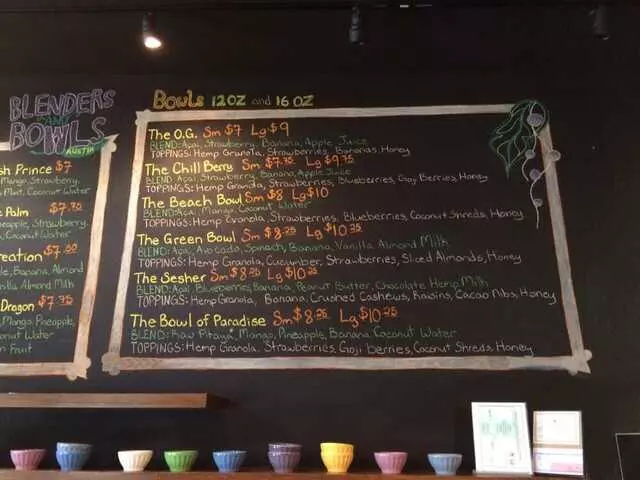 BLENDERS
AND
BOWLS
AUSTIN
sh Prince $7
Mango, Strawberry,
Mint, Coconut Water
e Palm $7.75
neapple, Strawberry
, Coconut Water
reation $7.50
le, Banana, Almond
nilla Almond Milk
Dragon $7.75
, Mango, Pineapple,
conut Water
n Fruit
Bowls 12oz and 16 OZ
The O.G. Sm $7 Lg $9
BLEND: Açai, Strawberry, Banana, Apple Juice
TOPPINGS: Hemp Granola, Strawberries, Bananas, Honey
The Chill Berry Sm $7.75 Lg $9.75
BLEND: Açai, Strawberry, Banana, Apple Juice
TOPPINGS: Hemp Granola, Strawberries, Blueberries, Goji Berries, Honey
The Beach Bowl Sm $8 Lg $10
BLEND: Açai, Mango, Coconut Water
TOPPINGS: Hemp Granola, Strawberries, Blueberries, Coconut Shreds, Honey
The Green Bowl Sm $8.25 Lg $10.25
BLEND: Açai, Avocado, Spinach, Banana, Vanilla Almond Milk
TOPPINGS: Hemp Granola, Cucumber, Strawberries, Sliced Almonds, Honey
The Sesher Sm $8.25 Lg $10.25
BLEND: Açai, Blueberries, Banana, Peanut Butter, Chocolate Hemp Milk
TOPPINGS: Hemp Granola, Banana, Crushed Cashews, Raisins, Cacao Nibs, Honey
The Bowl of Paradise Sm $8.25 Lg $10.25
BLEND: Raw Pitaya, Mango, Pineapple, Banana, Coconut Water
TOPPINGS: Hemp Granola, Strawberries, Goji berries, Coconut Shreds, Honey